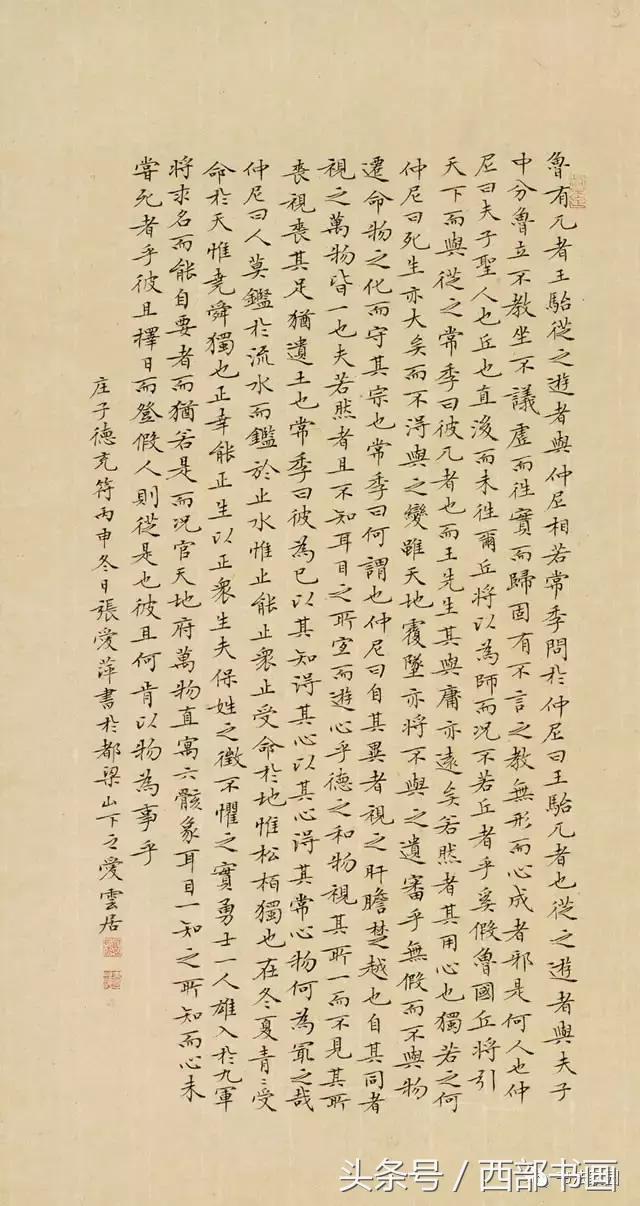 魯有兀者王駘從之遊者與仲尼相若常季問於仲尼曰王駘兀者也從之遊者與夫子
中分魯立不教坐不議虛而往實而歸固有不言之教無形而心成者邪是何人也仲
尼曰夫子聖人也丘也直後而未往爾丘將以為師而況不若丘者乎奚假魯國丘將引
天下而與從之常季曰彼兀者也而王先生其與庸亦遠矣若然者其用心也獨若之何
仲尼曰死生亦大矣而不得與之變雖天地覆墜亦將不與之遺審乎無假而不與物
遷命物之化而守其宗也常季曰何謂也仲尼曰自其異者視之肝膽楚越也自其同者
視之萬物皆一也夫若然者且不知耳目之所宜而遊心乎德之和物視其所一而不見其所
喪視喪其足猶遺土也常季曰彼為已以其知得其心以其心得其常心物何為冣之哉
仲尼曰人莫鑑於流水而鑑於止水惟止能止衆止受命於地惟松栢獨也在冬夏青〻受
命於天惟堯舜獨也正幸能正生以正衆生夫保姓之徵不懼之實勇士一人雄入於九軍
將求名而能自要者而猶若是而況官天地府萬物直寓六骸象耳目一知之所知而心未
嘗死者乎彼且擇日而登假人則從是也彼且何肯以物為事乎
庄子德充符丙申冬日張愛萍書於都梁山下之愛雲居
头条号 / 西部书画